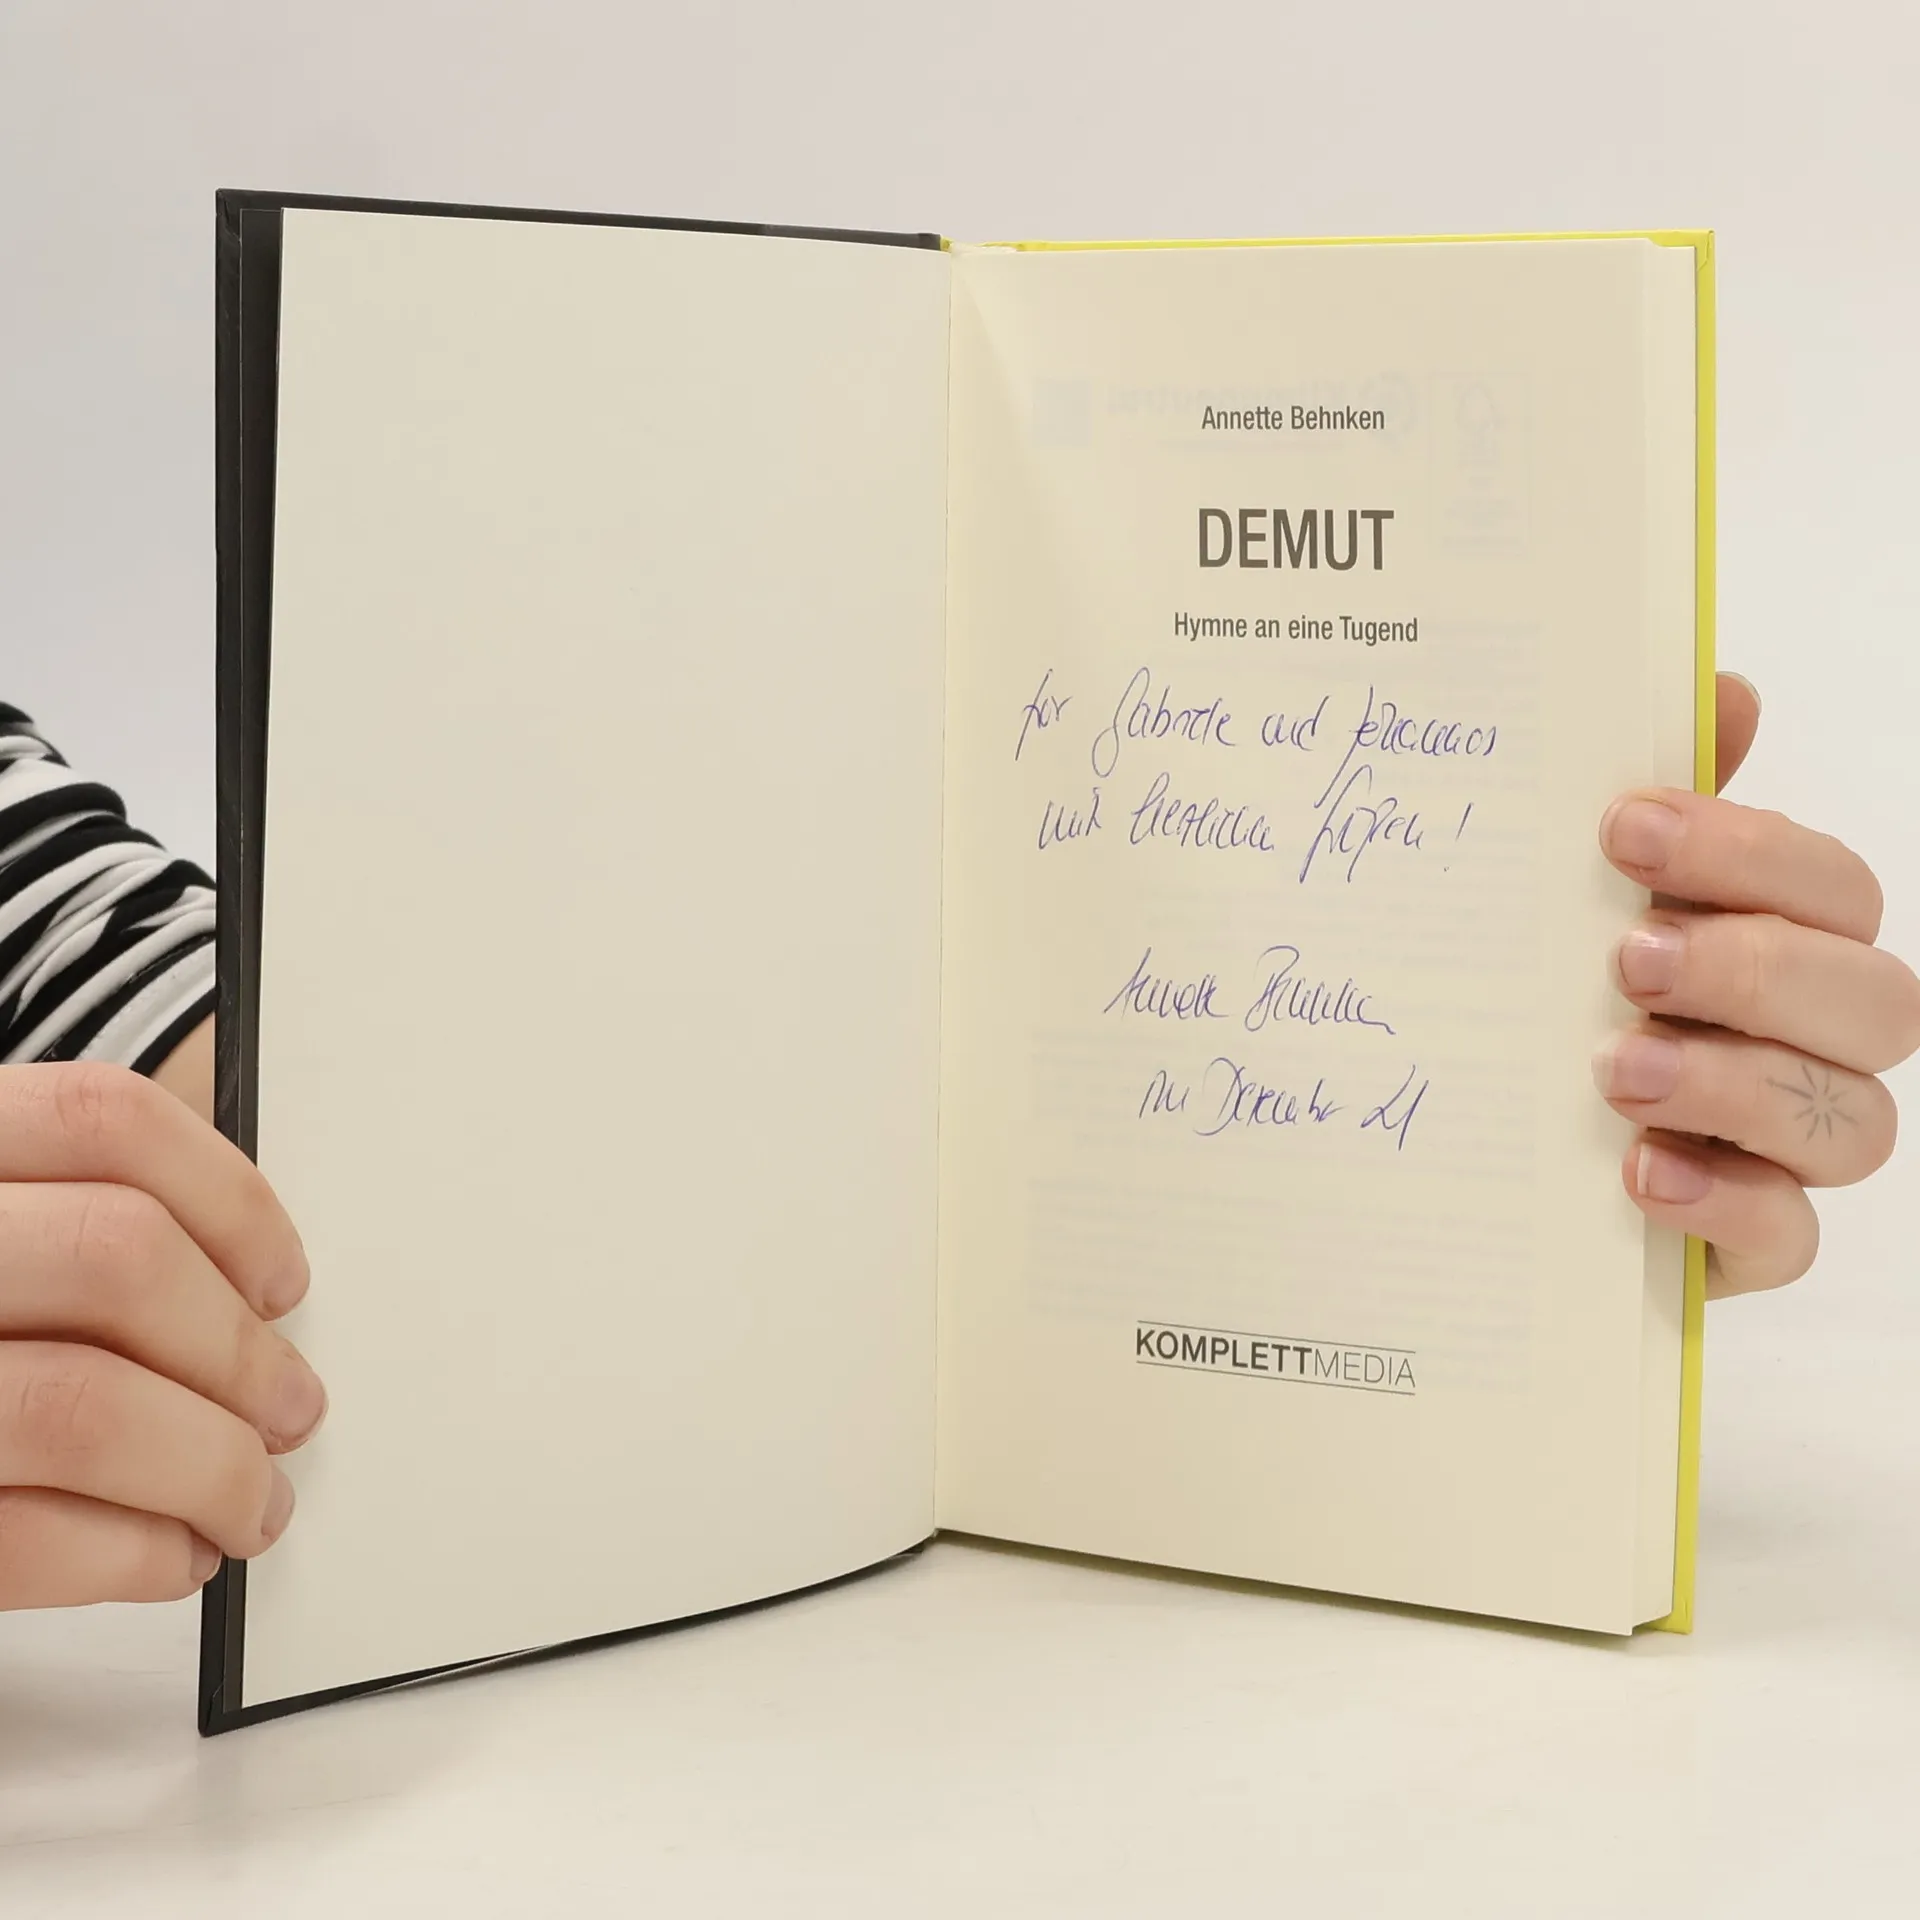 Annette Behnken
DEMUT
Hymne an eine Tugend
für Gabriele und
mit herzlichen Grüßen!
Annette Behnken
im Dezember 21
KOMPLETTMEDIA